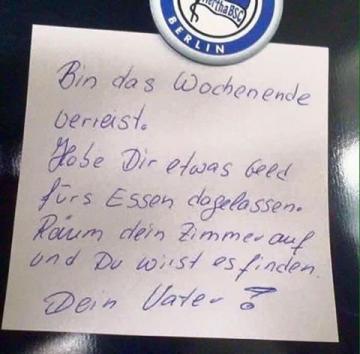 Hertha BSC
BERLIN
Bin das Wochenende
verreist.
Habe Dir etwas Geld
fürs Essen dagelassen.
Räum dein Zimmer auf
und Du wirst es finden.
Dein Vater !